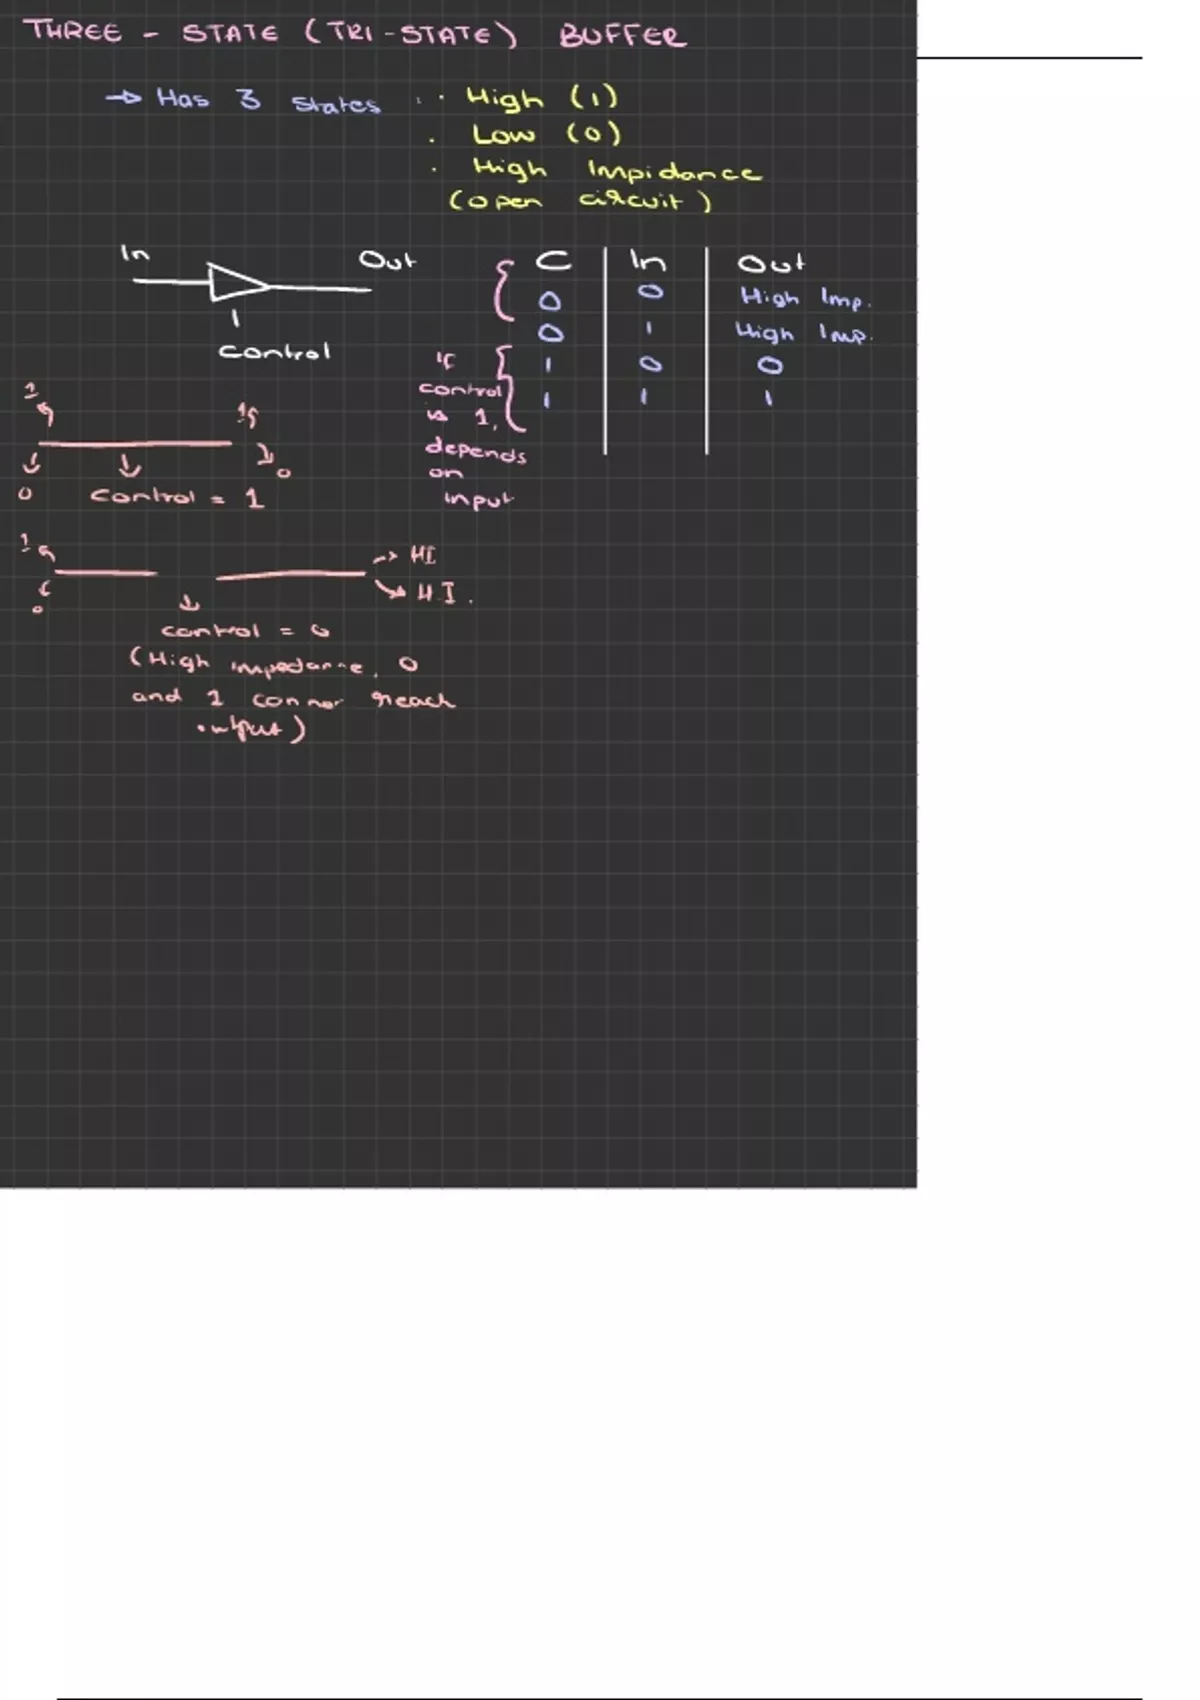 THREE - STATE (TRI-STATE) BUFFER
→ Has 3 states : · High (1)
· Low (0)
· High Impidance
(open circuit)
In Out
Control
C In Out
0 0 High Imp.
0 1 High Imp.
1 0 0
1 1 1
If
control
is 1,
depends
on
input
1 1
0 0
control = 1
1 → HI
0 → H.I.
control = 0
(High impedance, 0
and 1 cannot reach
output)